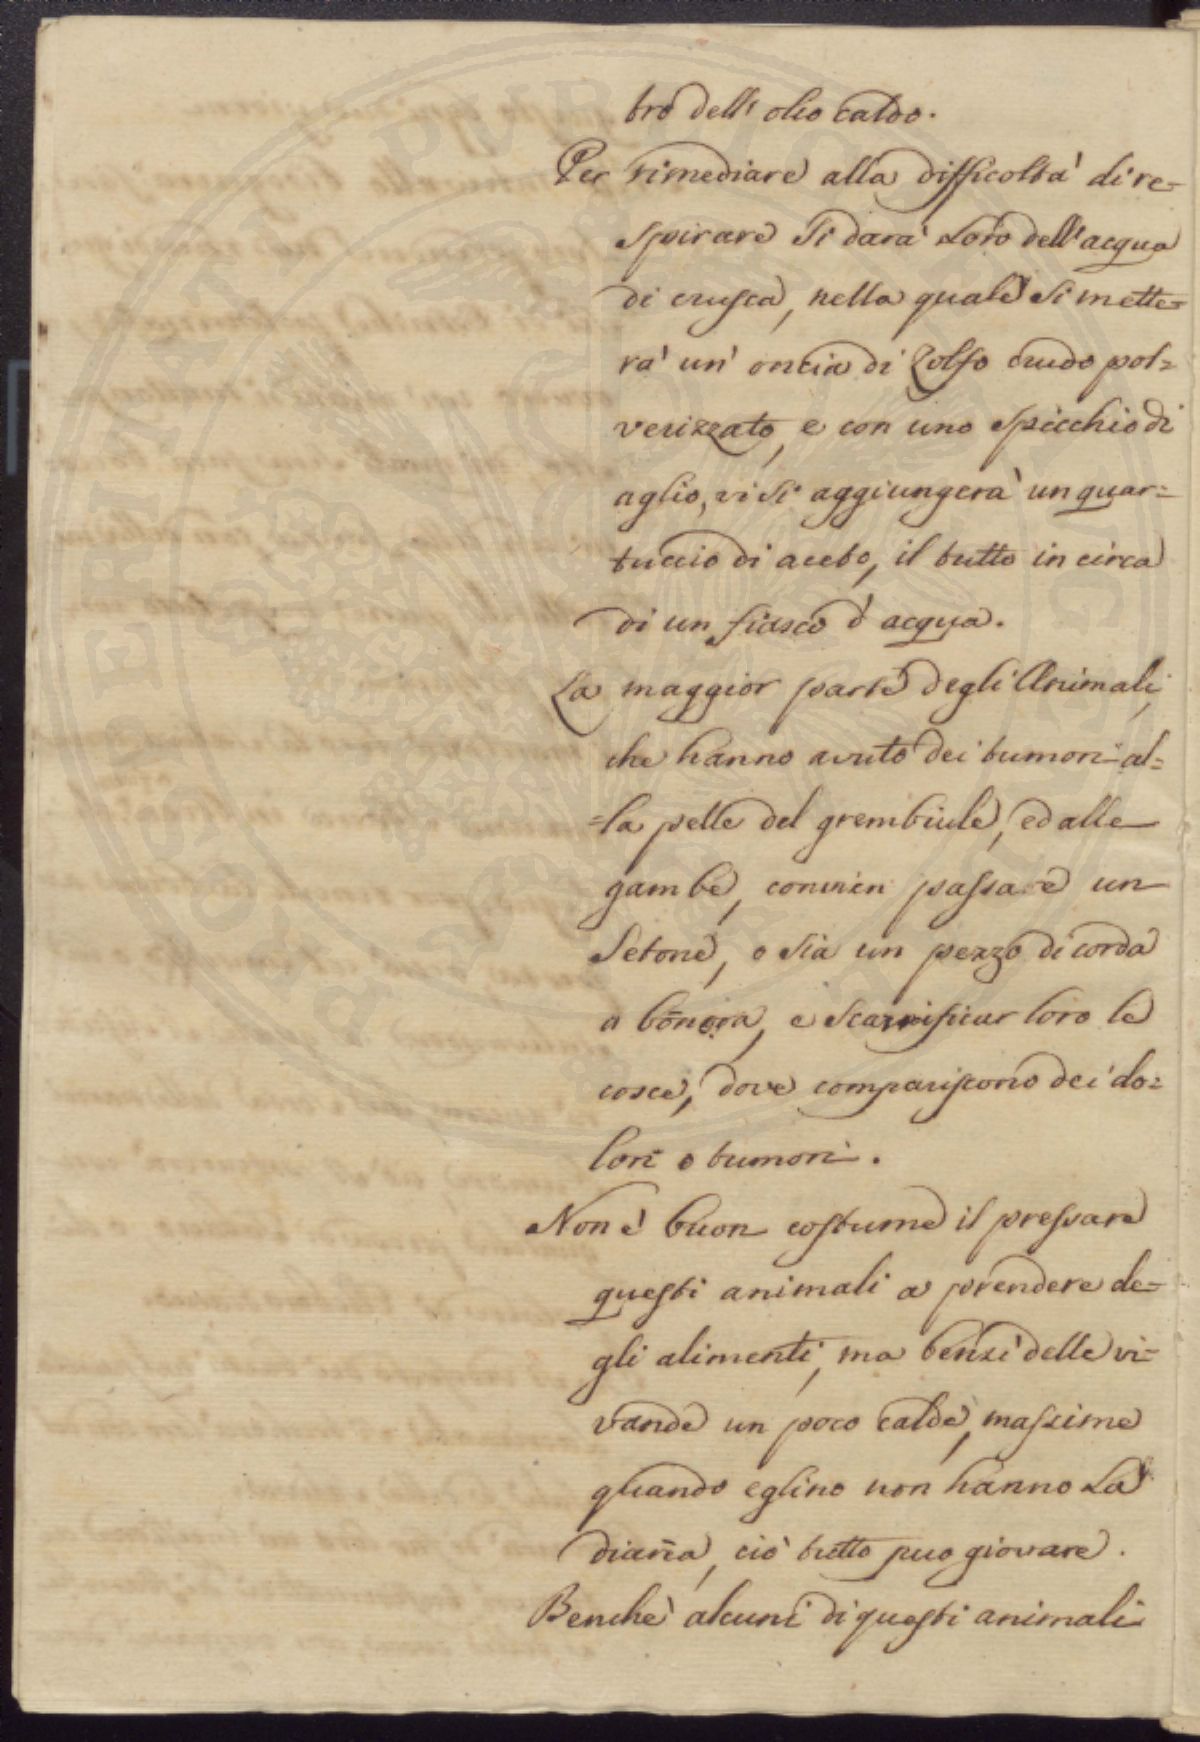 tro dell' olio caldo.
Per rimediare alla difficoltà di re=
spirare si darà Loro dell'acqua
di crusca, nella quale si mette=
rà un' oncia di Zolfo crudo pol=
verizzato, e con uno spicchio di
aglio, vi si aggiungerà un quar=
tuccio di aceto, il tutto in circa
di un fiasco d'acqua.
La maggior parte degli Animali,
che hanno avuto dei tumori al=
=la pelle del grembiule, ed alle
gambe, convien passare un
Setone, o sia un pezzo di corda
a bōnora, e scarrificar loro le
cosce, dove compariscono dei do=
lori o tumori.
Non è buon costume il pressare
questi animali a prendere de=
gli alimenti, ma bensì delle vi=
vande un poco calde, massime
quando eglino non hanno La
diar̄ea, ciò tutto può giovare.
Benchè alcuni di questi animali